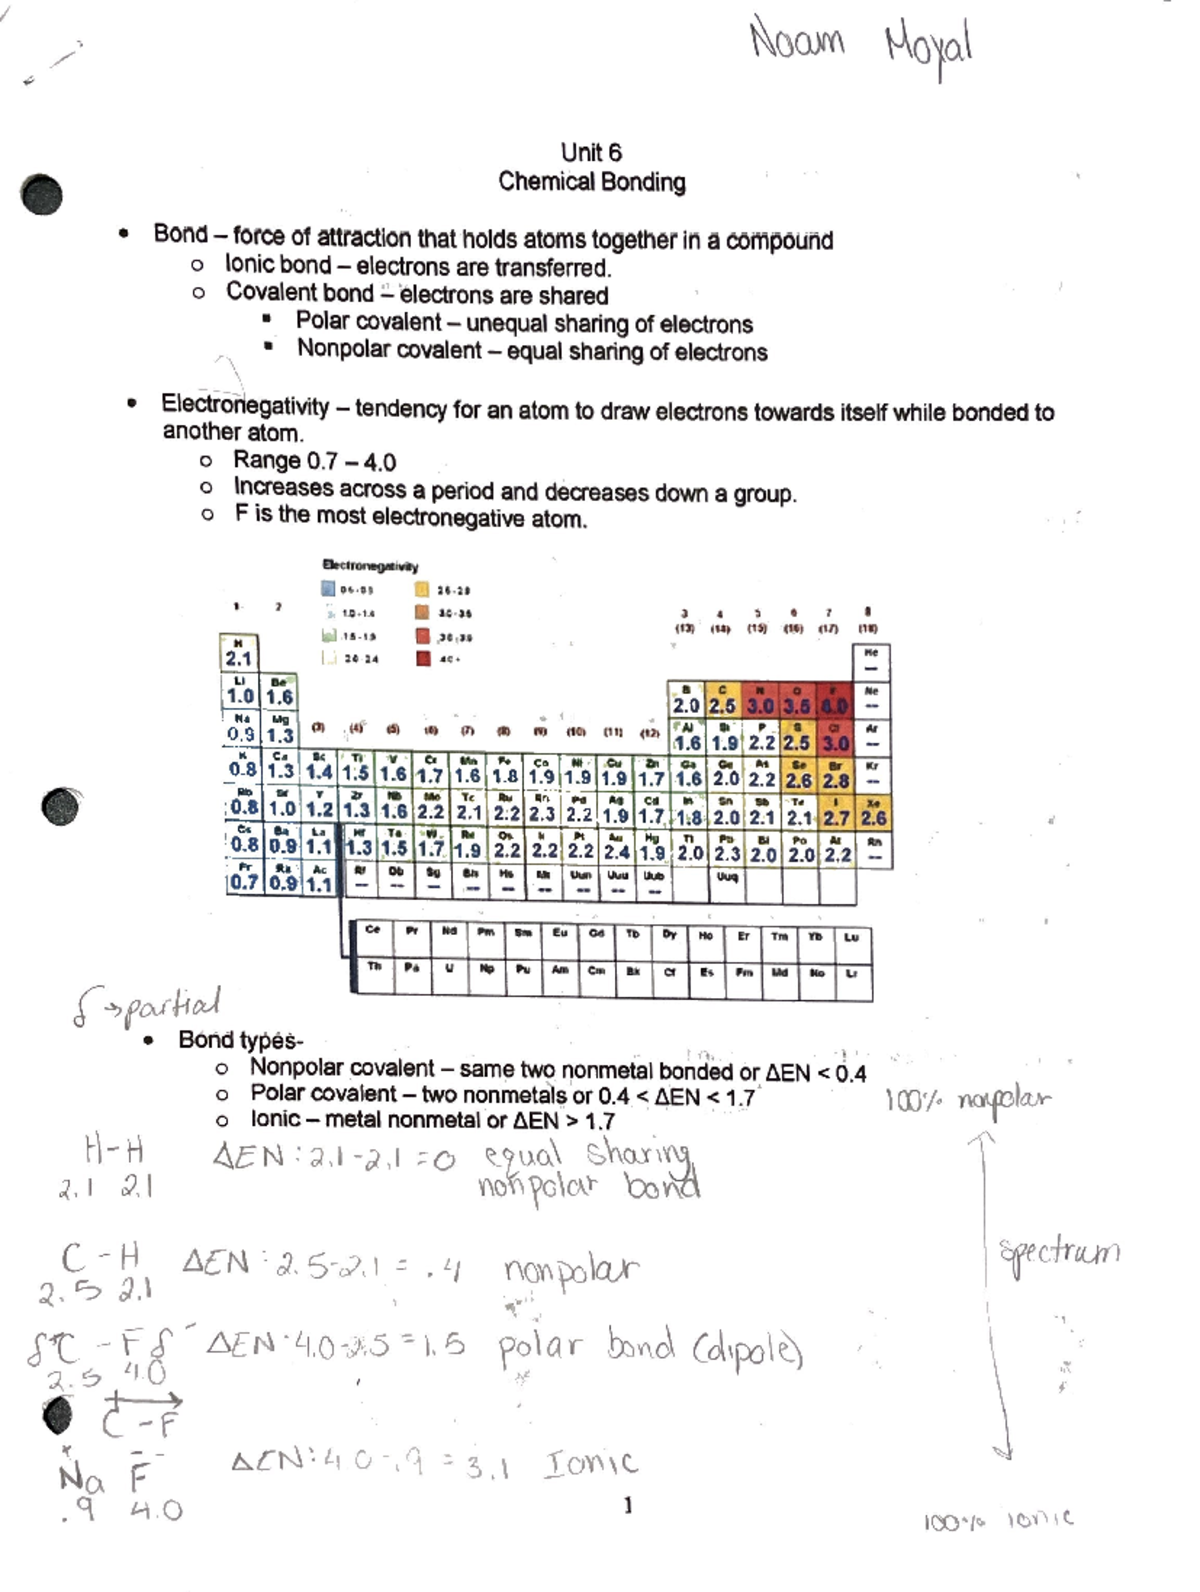 Noam Moyal
Unit 6
Chemical Bonding
• Bond – force of attraction that holds atoms together in a compound
o Ionic bond – electrons are transferred.
o Covalent bond – electrons are shared
▪ Polar covalent – unequal sharing of electrons
▪ Nonpolar covalent – equal sharing of electrons
• Electronegativity – tendency for an atom to draw electrons towards itself while bonded to
another atom.
o Range 0.7 – 4.0
o Increases across a period and decreases down a group.
o F is the most electronegative atom.
Electronegativity
2.6-2.9
1.0-1.4
1.5-1.9
2.0-2.4
4.0+
1 2 3 4 5 6 7 8
(13) (14) (15) (16) (17) (18)
H He
2.1 --
Li Be B C N O F Ne
1.0 1.6 2.0 2.5 3.0 3.5 4.0 --
Na Mg (3) (4) (5) (6) (7) (8) (9) (10) (11) (12) Al Si P S Cl Ar
0.9 1.3 1.6 1.9 2.2 2.5 3.0 --
K Ca Sc Ti V Cr Mn Fe Co Ni Cu Zn Ga Ge As Se Br Kr
0.8 1.3 1.4 1.5 1.6 1.7 1.6 1.8 1.9 1.9 1.9 1.7 1.6 2.0 2.2 2.6 2.8 --
Rb Sr Y Zr Nb Mo Tc Ru Rh Pd Ag Cd In Sn Sb Te I Xe
0.8 1.0 1.2 1.3 1.6 2.2 2.1 2.2 2.3 2.2 1.9 1.7 1.8 2.0 2.1 2.1 2.7 2.6
Cs Ba La Hf Ta W Re Os Ir Pt Au Hg Tl Pb Bi Po At Rn
0.8 0.9 1.1 1.3 1.5 1.7 1.9 2.2 2.2 2.2 2.4 1.9 2.0 2.3 2.0 2.0 2.2 --
Fr Ra Ac Rf Db Sg Bh Hs Mt Uun Uuu Uub Uuq
0.7 0.9 1.1 -- -- -- -- -- -- -- -- --
Ce Pr Nd Pm Sm Eu Gd Tb Dy Ho Er Tm Yb Lu
Th Pa U Np Pu Am Cm Bk Cf Es Fm Md No Lr
δ → partial
• Bond types-
o Nonpolar covalent – same two nonmetal bonded or ΔEN < 0.4
o Polar covalent – two nonmetals or 0.4 < ΔEN < 1.7
o Ionic – metal nonmetal or ΔEN > 1.7
100% nonpolar
H-H ΔEN: 2.1-2.1 = 0 equal sharing
2.1 2.1 nonpolar bond
spectrum
C-H ΔEN: 2.5-2.1 = .4 nonpolar
2.5 2.1
δ⁺C - F δ⁻ ΔEN: 4.0-2.5 = 1.5 polar bond (dipole)
2.5 4.0
C-F
Na⁺ F⁻ ΔEN: 4.0-.9 = 3.1 Ionic
.9 4.0
1
100% ionic